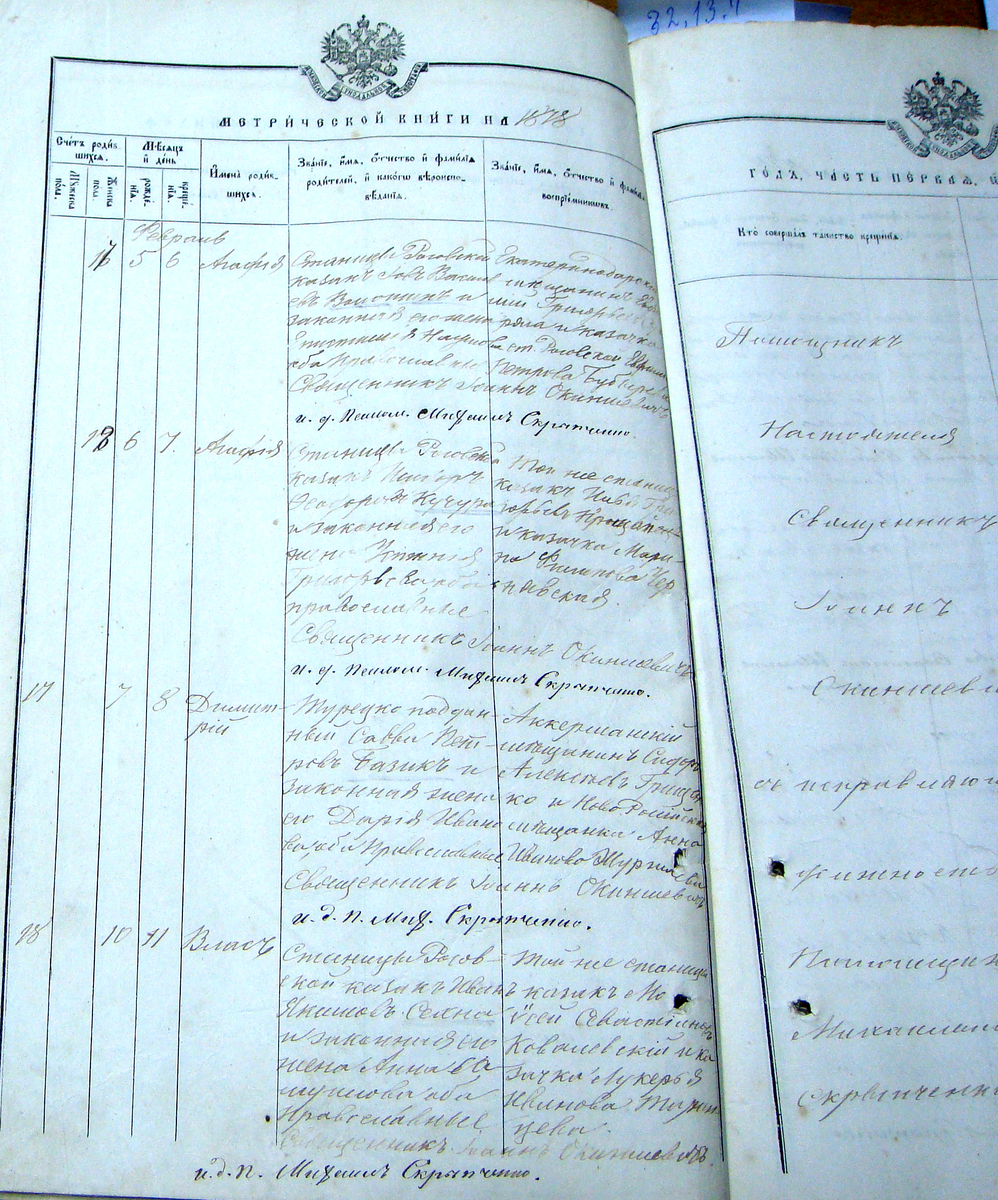 32,13,4
МЕТРИЧЕСКОЙ КНИГИ НА 1878
Счетъ родив-
шихся.
Мѣсяцъ
и день
Мужеска
пола.
Женска
пола.
рожде-
нія.
креще-
нія.
Имена родив-
шихся.
Званіе, имя, отчество и фамилія
родителей, и какого вѣроиспо-
вѣданія.
Званіе, имя, отчество и фамилія
воспріемниковъ.
Февраль
17 5 6 Агафія
Станицы Роговской
казакъ Іовъ Васил
евъ и
законная его жена
Наумова
оба православные
Екатеринодарскій
мѣщанинъ
Григорьев
и казачка
ст. Роговской
Петрова
Священникъ Іоаннъ Окиншевичъ
и. д. Псалом. Михаилъ Скрыпченко.
18 6 7. Агафія
Станицы Роговской
казакъ
Феодоровъ Кучура
и законная его
жена
Григорьева, оба
православные
Той же станицы
казакъ
и казачка Мари-
на Филипова Чер
нявская.
Священникъ Іоаннъ Окиншевичъ
и. д. Псалом. Михаилъ Скрыпченко.
17 7 8 Димит-
рій
Турецко поддан-
ный Савва Пет-
ровъ Базикъ и
законная жена
его Дарія Ивано
ва, оба православные
Аккерманскій
мѣщанинъ Сидоръ
Алексѣевъ Грищен
ко и Новоросійская
мѣщанка Анна
Иванова
Священникъ Іоаннъ Окиншевичъ
и. д. П. Мих. Скрыпченко.
18 10 11 Власъ
Станицы Рогов-
ской казакъ Иванъ
Якимовъ
и законная его
жена Анна Са
муилова оба
православные
Той же станицы
казакъ Мо
ѵсей Севастіановъ
Ковалевскій и ка
зачка Лукерья
Иванова
Священникъ Іоаннъ Окиншевичъ.
и. д. П. Михаилъ Скрыпченко.
ГОДЪ, ЧАСТЬ ПЕРВАЯ,
Кто совершалъ таинство крещенія.
Помощникъ
Настоятеля
Священникъ
Іоаннъ
Окиншеви
съ исправляющ
должность
Псаломщик
Михаиломъ
Скрыпченк